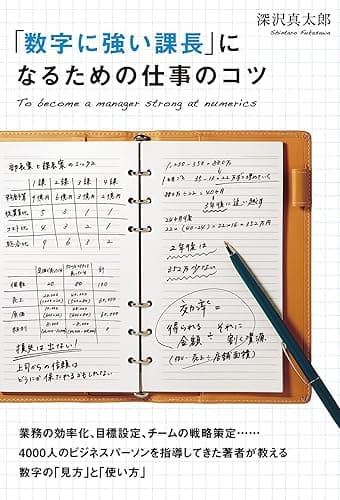 深沢真太郎
Shintaro Fukasawa
「数字に強い課長」に
なるための仕事のコツ
To become a manager strong at numerics
部長案と課長案のミックス
1課 2課 3課 4課
5 3 1 1
4 3 2 1
9 6 3 2
計
個数 20 80 100
売上
原価
粗利
損失は出ない!
上司からの信頼は
1,230-350=880万
880万÷22=40ヶ月
3年後に追い越す
24ヶ月後
22×(40-24)=22×16=352万円
2年後は
352万少ない
効率=
得られる金額÷それに割く資源
(例:売上÷店舗面積)
業務の効率化、目標設定、チームの戦略策定……
4000人のビジネスパーソンを指導してきた著者が教える
数字の「見方」と「使い方」